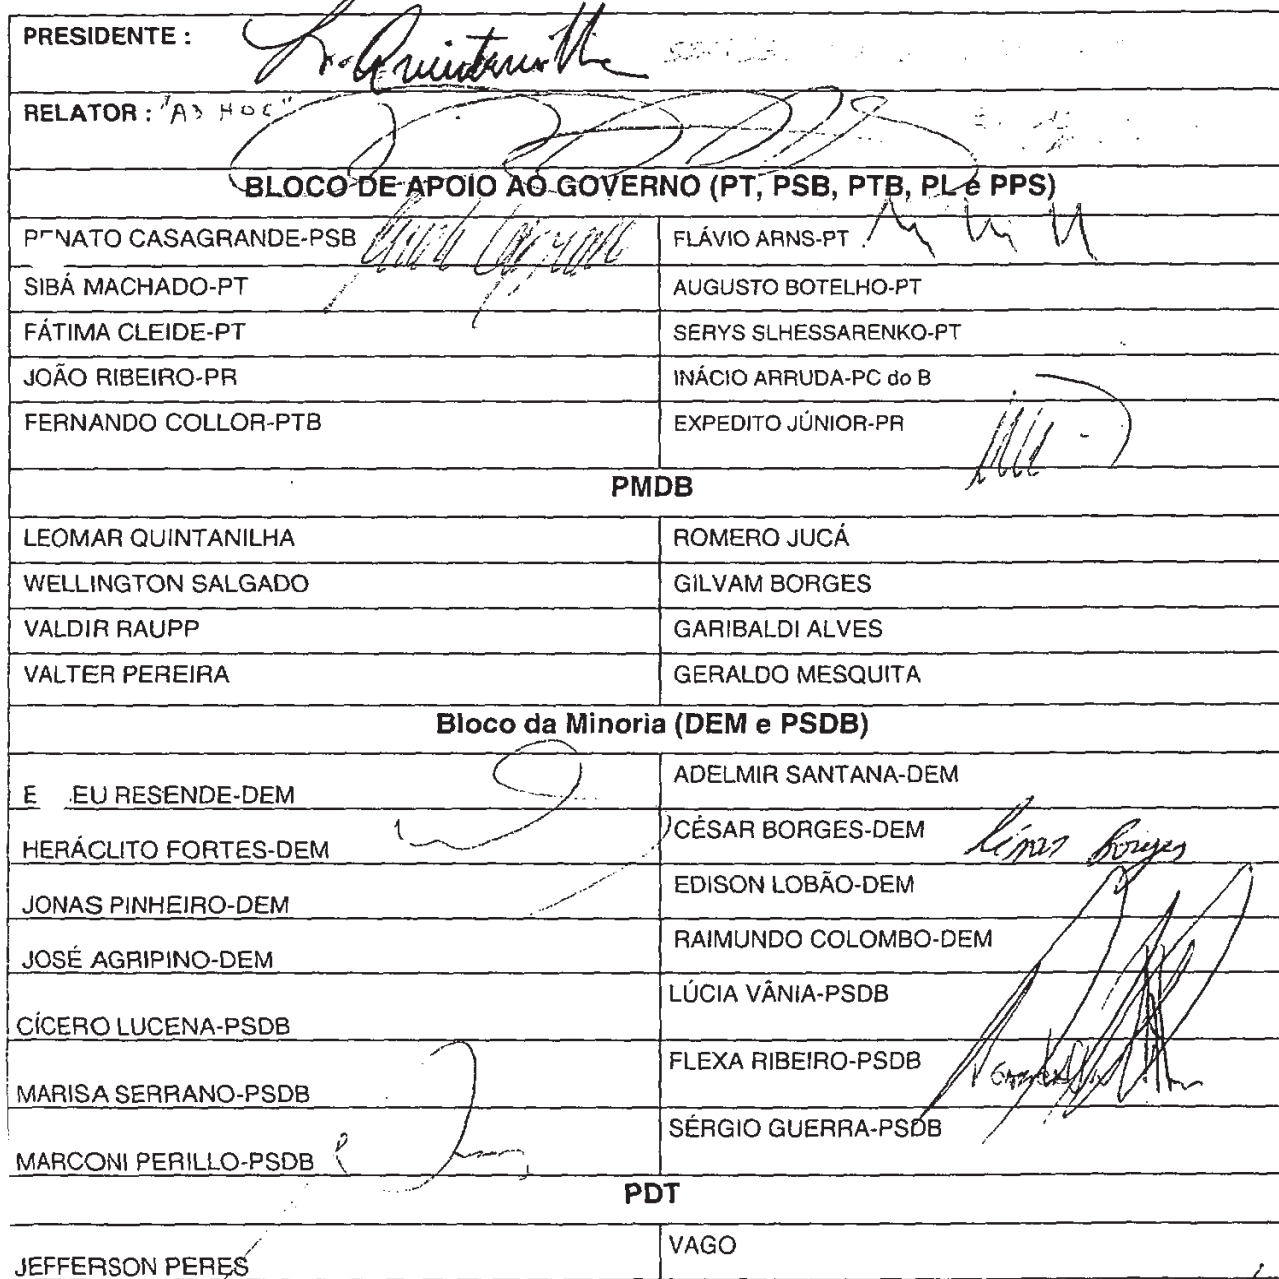 PRESIDENTE : L. Quintanilha
RELATOR : "AD HOC"
BLOCO DE APOIO AO GOVERNO (PT, PSB, PTB, PL e PPS)
RENATO CASAGRANDE-PSB
FLÁVIO ARNS-PT
SIBÁ MACHADO-PT
AUGUSTO BOTELHO-PT
FÁTIMA CLEIDE-PT
SERYS SLHESSARENKO-PT
JOÃO RIBEIRO-PR
INÁCIO ARRUDA-PC do B
FERNANDO COLLOR-PTB
EXPEDITO JÚNIOR-PR
PMDB
LEOMAR QUINTANILHA
ROMERO JUCÁ
WELLINGTON SALGADO
GILVAM BORGES
VALDIR RAUPP
GARIBALDI ALVES
VALTER PEREIRA
GERALDO MESQUITA
Bloco da Minoria (DEM e PSDB)
E EU RESENDE-DEM
ADELMIR SANTANA-DEM
HERÁCLITO FORTES-DEM
CÉSAR BORGES-DEM César Borges
JONAS PINHEIRO-DEM
EDISON LOBÃO-DEM
JOSÉ AGRIPINO-DEM
RAIMUNDO COLOMBO-DEM
CÍCERO LUCENA-PSDB
LÚCIA VÂNIA-PSDB
MARISA SERRANO-PSDB
FLEXA RIBEIRO-PSDB
MARCONI PERILLO-PSDB
SÉRGIO GUERRA-PSDB
PDT
JEFFERSON PERES
VAGO